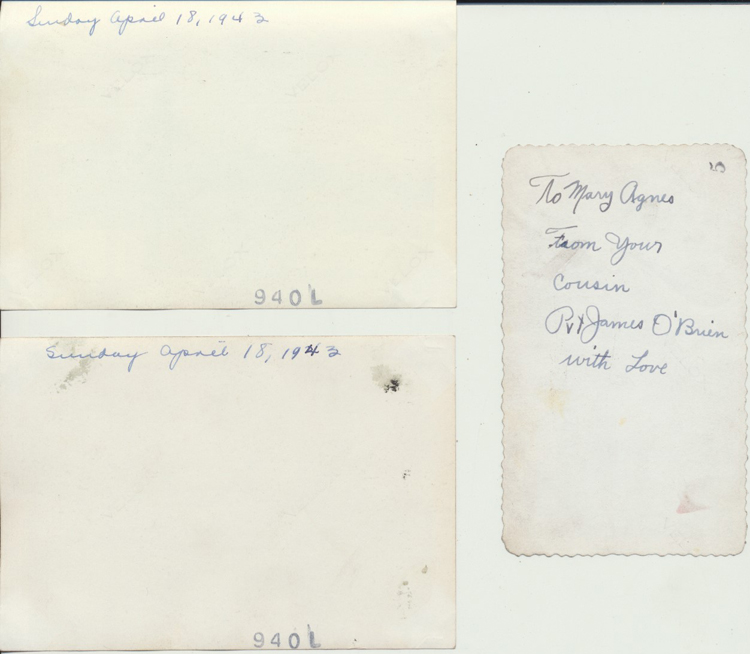 Sunday April 18, 1943
940L
Sunday April 18, 1943
940L
5
To Mary Agnes
From Your
Cousin
Pvt James O'Brien
with Love